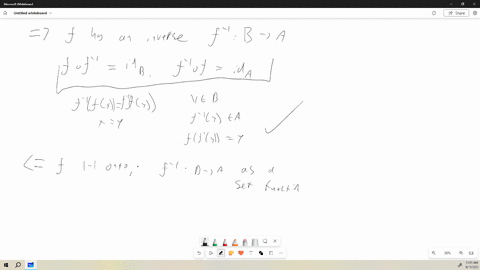 Microsoft Whiteboard
Untitled whiteboard
Share
=> f has an inverse f⁻¹: B → A
f∘f⁻¹ = id_B, f⁻¹∘f = id_A
f⁻¹(f(x)) = f⁻¹(f(y))
x = y
y ∈ B
f⁻¹(y) ∈ A
f(f⁻¹(y)) = y
<= f 1-1 onto, f⁻¹: B → A as a
set